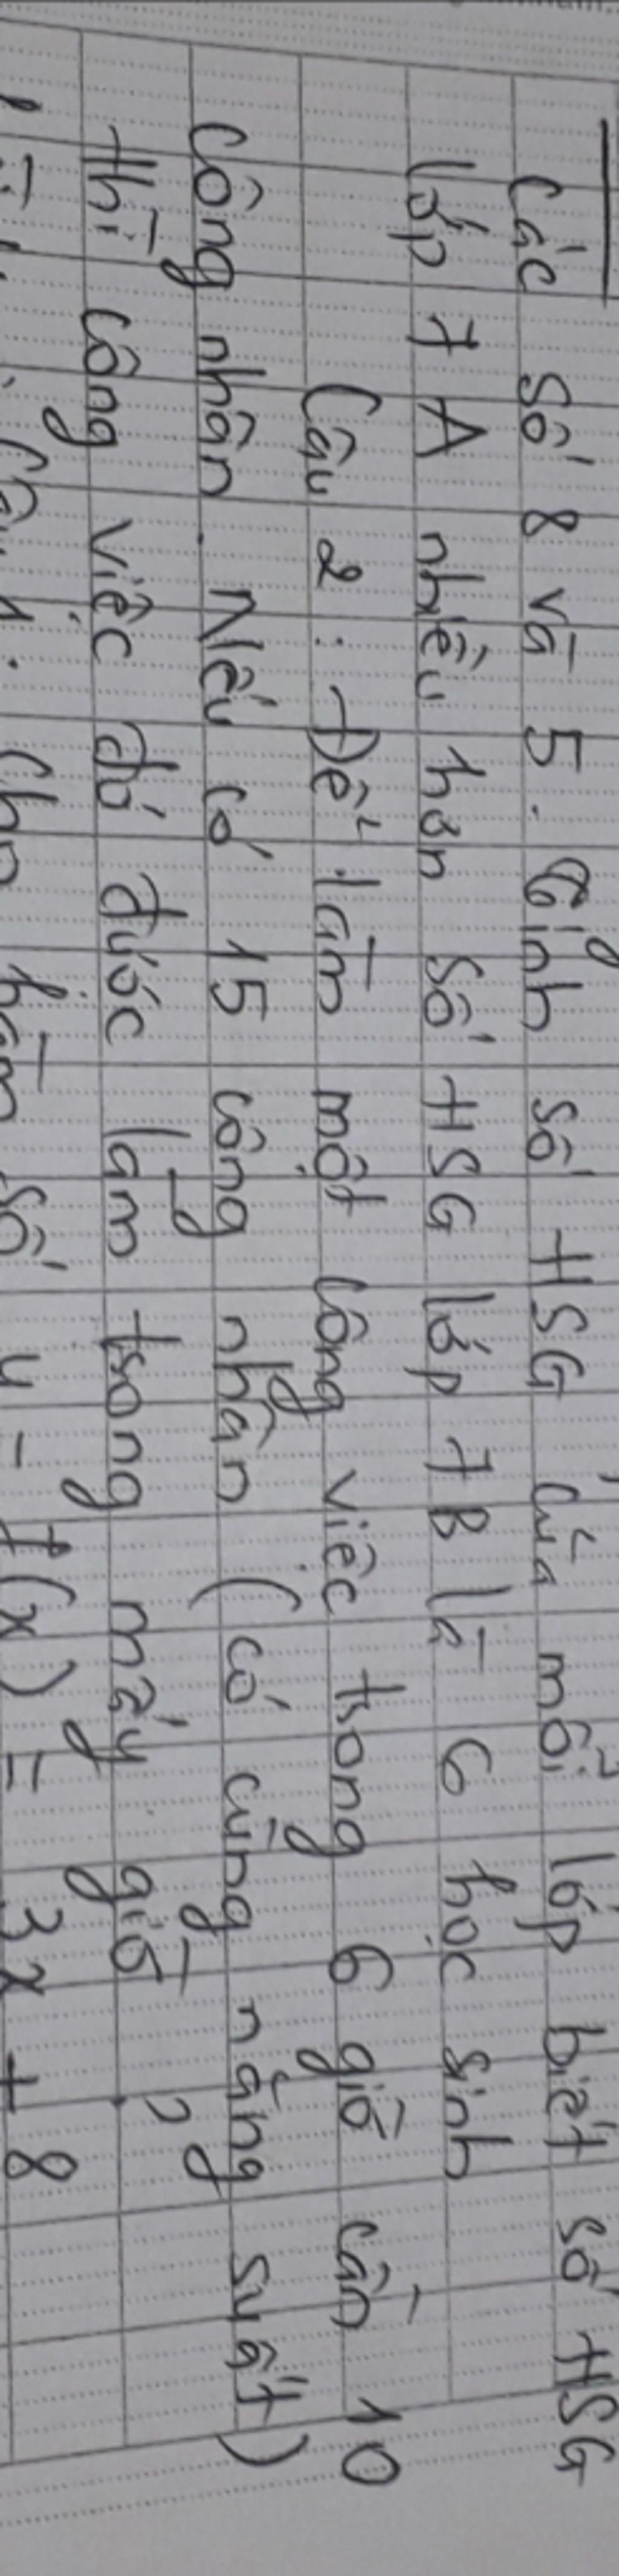 các số 8 và 5. Tính số HSG của mỗi lớp biết số HSG
lớp 7A nhiều hơn số HSG lớp 7B là 6 học sinh
Câu 2: Để làm một công việc trong 6 giờ cần 10
công nhân. Nếu có 15 công nhân (có cùng năng suất)
thì công việc đó được làm trong mấy giờ?
Câu 4: Cho hàm số y = f(x) = 3x + 8